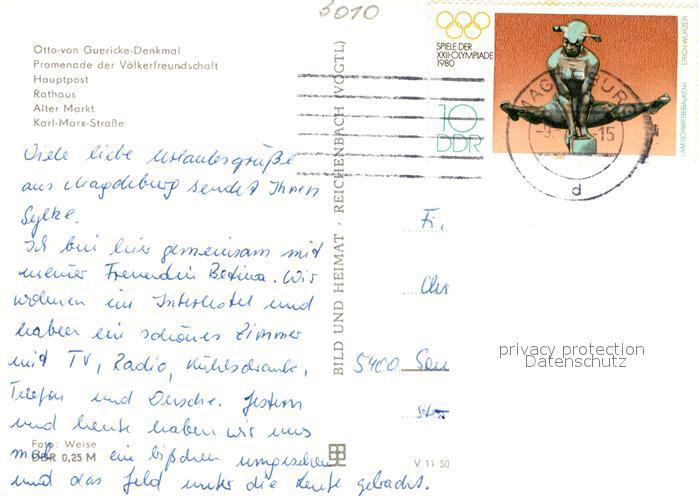 5010
Otto-von Guericke-Denkmal
Promenade der Völkerfreundschaft
Hauptpost
Rathaus
Alter Markt
Karl-Marx-Straße
SPIELE DER
XXII·OLYMPIADE
1980
10
DDR
ERICH WURZER
(AM SCHWEBEBALKEN)
MAGDEBURG
-9. -15
d
Viele liebe Urlaubsgrüße
aus Magdeburg sendet Ihnen
Sylke.
Ich bin hier gemeinsam mit
meiner Freundin Bettina. Wir
wohnen im Interhotel und
haben ein schönes Zimmer
mit TV, Radio, Kühlschrank,
Telefon und Dusche. Gestern
und heute haben wir uns
ein bißchen umgesehen
und das Geld unter die Leute gebracht.
BILD UND HEIMAT · REICHENBACH (VOGTL)
Fr.
5400
privacy protection
Datenschutz
Foto: Weise
DDR 0,25 M
V 11 50